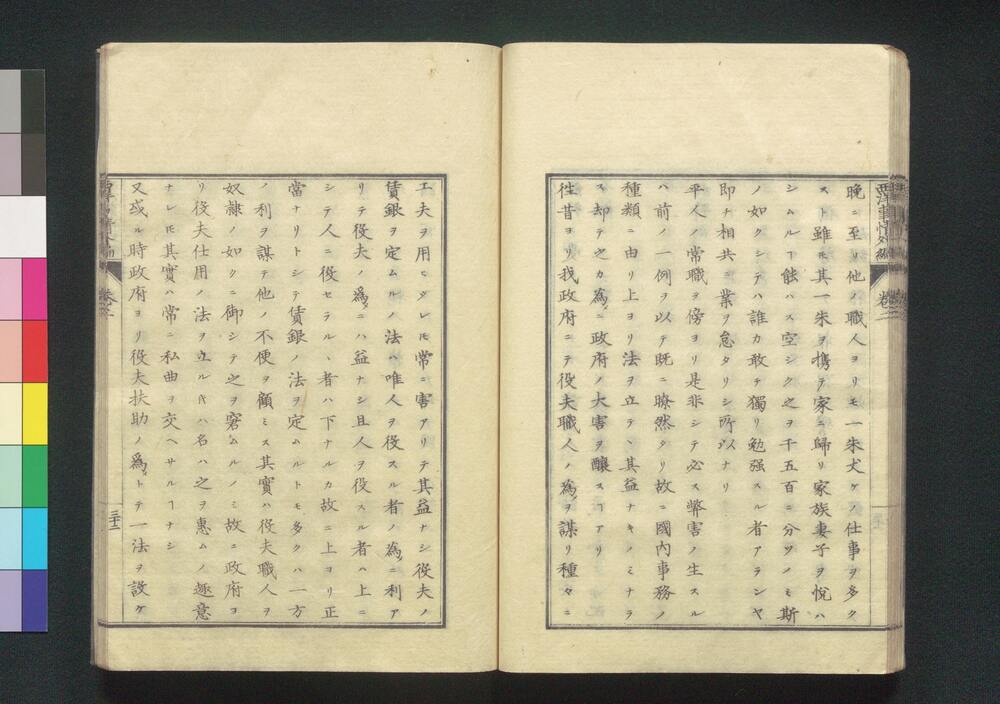 西洋事情外編
卷二
晩ニ至リ他ノ職人ヨリモ一朱丈ケノ仕事ヲ多ク
スト雖𪜈其一朱ヲ携テ家ニ歸リ家族妻子ヲ悅ハ
シムルヿ能ハス空シク之ヲ千五百ニ分ツノミ斯
ノ如クシテハ誰カ敢テ獨リ勉强スル者アランヤ
即チ相共ニ業ヲ怠タリシ所以ナリ
平人ノ常職ヲ傍ヨリ是非シテ必ス弊害ノ生スル
ハ前ノ一例ヲ以テ既ニ瞭然タリ故ニ國內事務ノ
種類ニ由リ上ヨリ法ヲ立テヽ其益ナキノミナラ
ス却テ之カ為メニ政府ノ大害ヲ釀スヿアリ
徃昔ヨリ我政府ニテ役夫職人ノ為メヲ謀リ種々ニ
工夫ヲ用ヒタレ𪜈常ニ害アリテ其益ナシ役夫ノ
賃銀ヲ定ムルノ法ハ唯人ヲ役スル者ノ為メニ利ア
リテ役夫ノ為メニハ益ナシ且人ヲ役スル者ハ上ニ
シテ人ニ役セラルヽ者ハ下ナルカ故ニ上ヨリ正
當ナリトシテ賃銀ノ法ヲ定ムルトモ多クハ一方
ノ利ヲ謀テ他ノ不便ヲ顧ミス其實ハ役夫職人ヲ
奴隷ノ如クニ御シテ之ヲ窘ムルノミ故ニ政府ヨ
リ役夫仕用ノ法ヲ立ルハ名ハ之ヲ惠ムノ趣意
ナレ𪜈其實ハ常ニ私曲ヲ交ヘサルヿナシ
又或ル時政府ヨリ役夫扶助ノ為メトテ一法ヲ設ケ
西洋事情外編
卷二
三十二